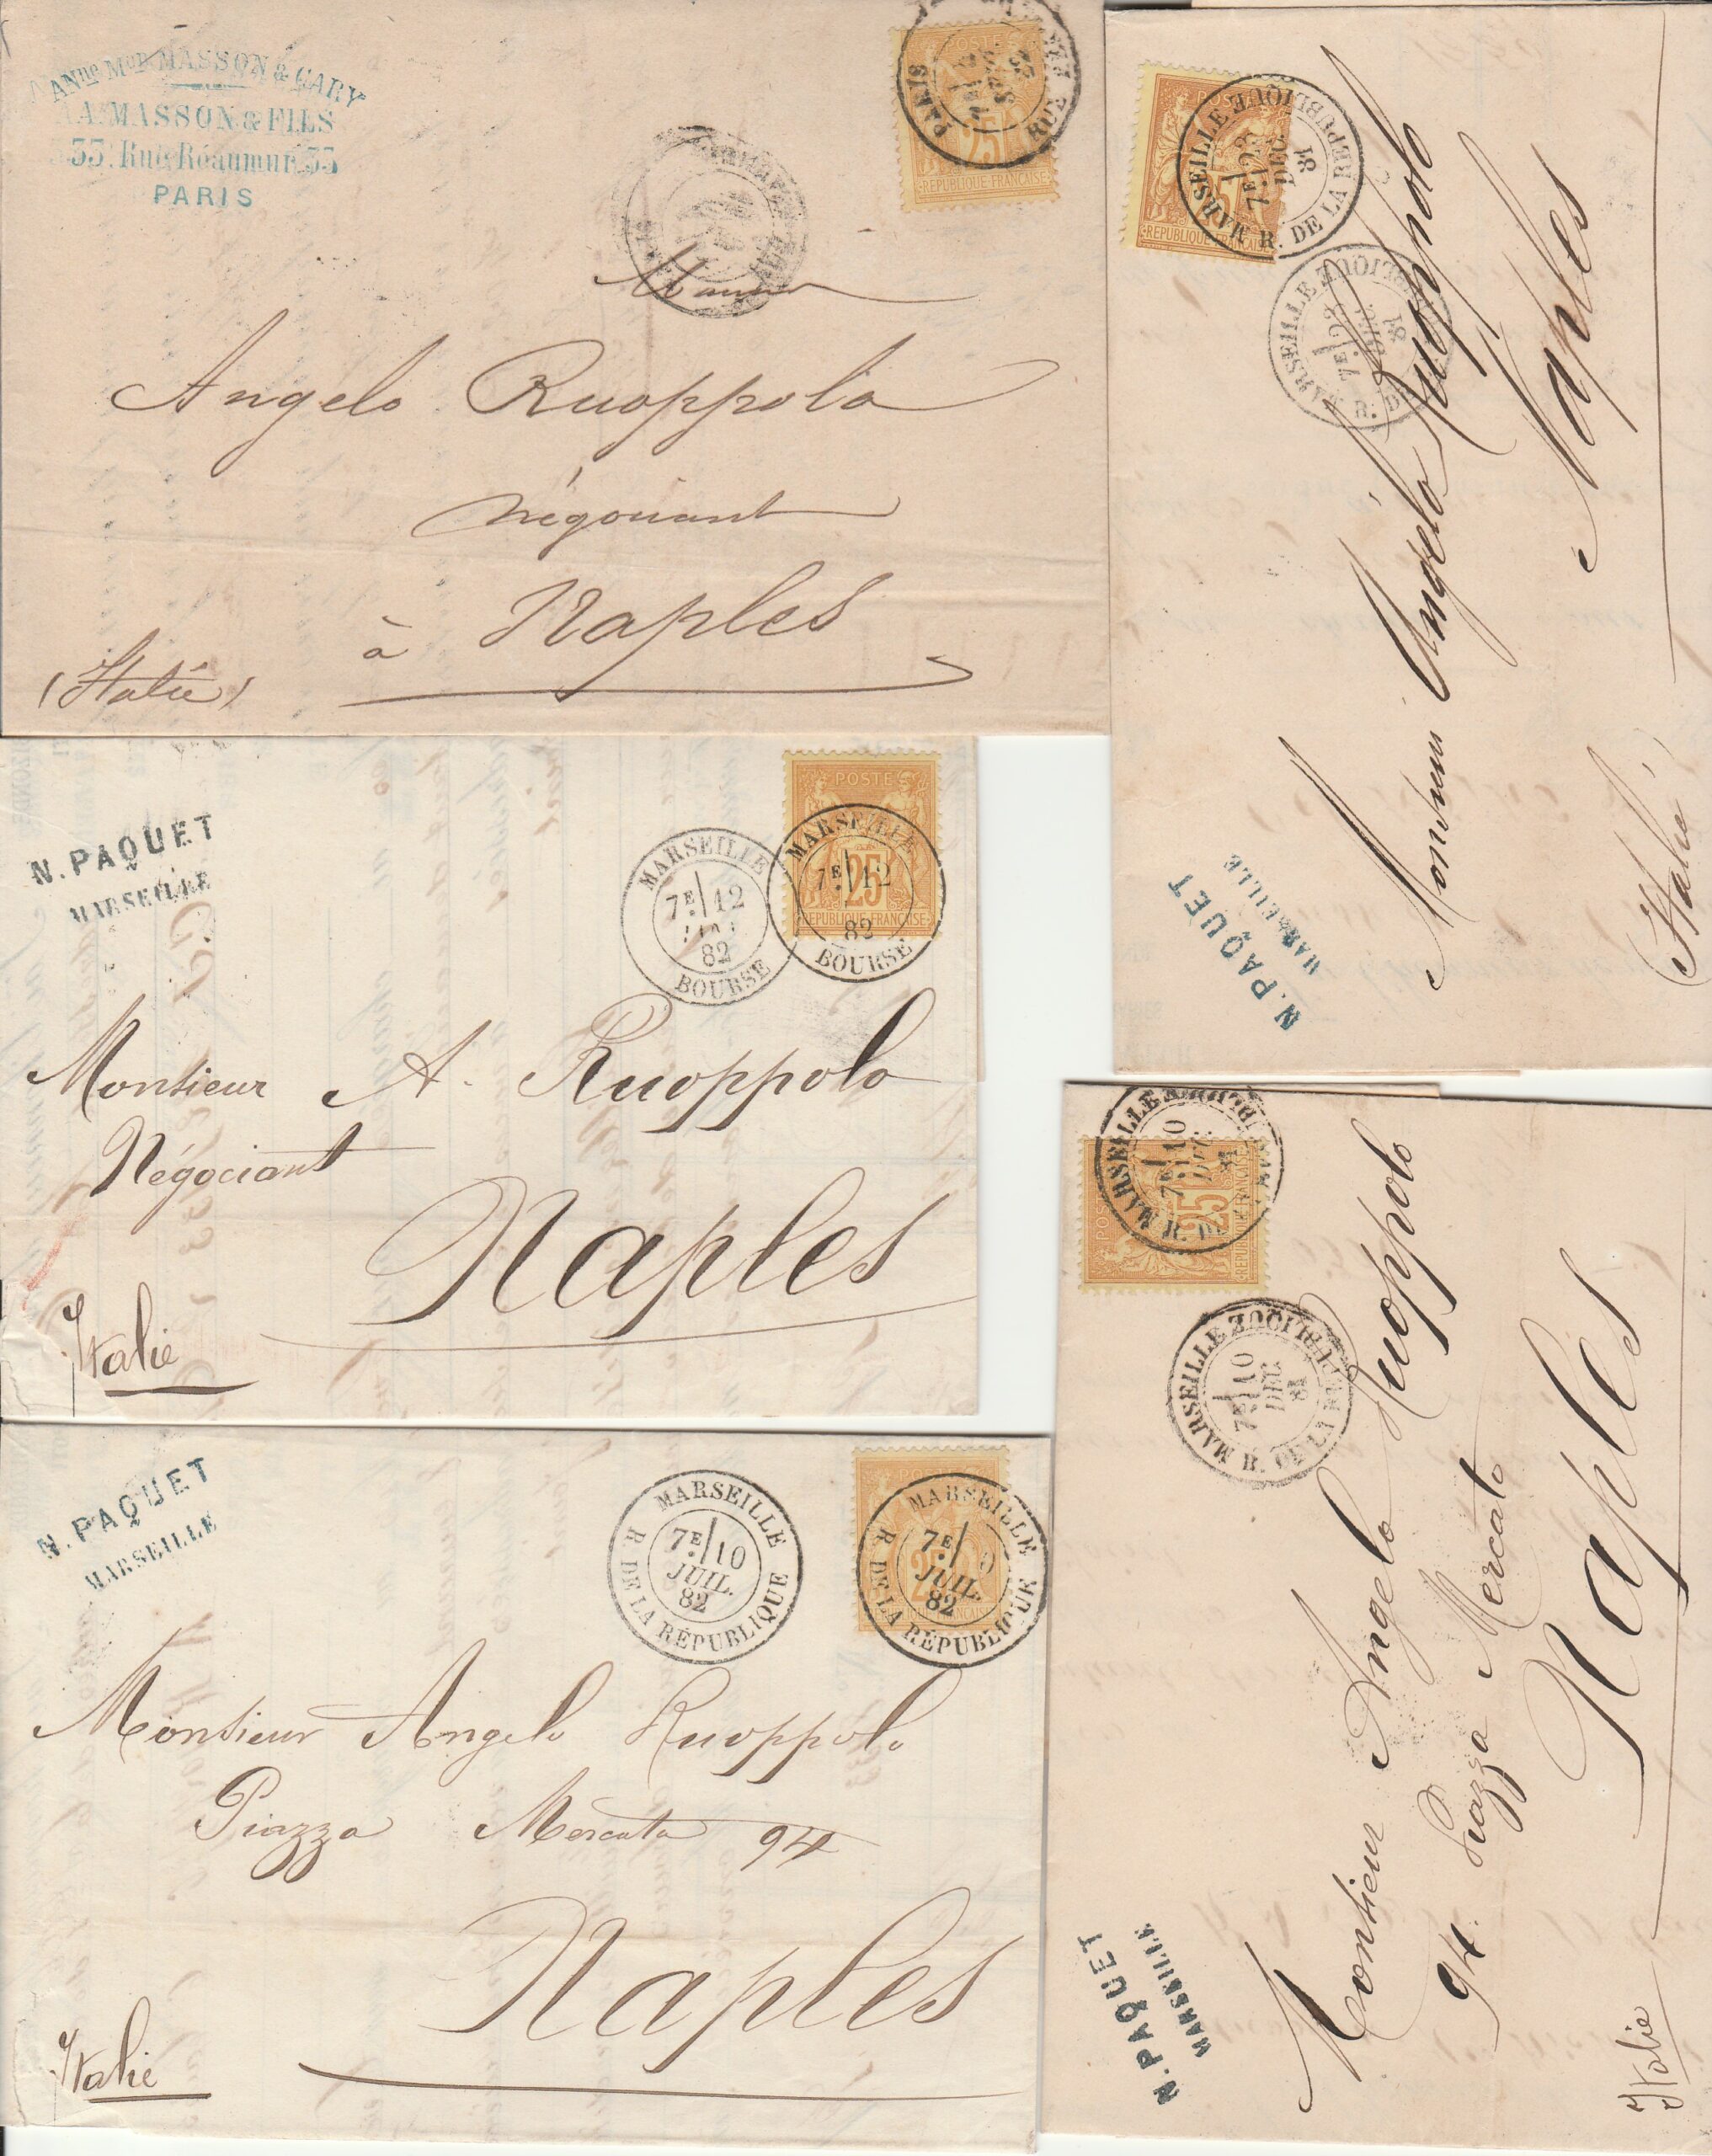 ANne Mon MASSON & CARY
A. MASSON & FILS
33, Rue Réaumur, 33
PARIS
POSTE
25
REPUBLIQUE FRANÇAISE
PARIS
RUE
Angelo Ruoppolo
négociant
à Naples
(Italie)
N. PAQUET
MARSEILLE
MARSEILLE
7E 12
82
BOURSE
POSTE
25
REPUBLIQUE FRANÇAISE
MARSEILLE
7E 12
82
BOURSE
Monsieur A. Ruoppolo
Négociant
Naples
Italie
N. PAQUET
MARSEILLE
MARSEILLE
7E 10
JUIL.
82
R. DE LA RÉPUBLIQUE
25
MARSEILLE
7E
JUIL.
82
R. DE LA RÉPUBLIQUE
Monsieur Angelo Ruoppolo
Piazza Mercato 94
Naples
Italie
POSTE
REPUBLIQUE FRANÇAISE
MARSEILLE
7E 23
DEC.
81
R. DE LA REPUBLIQUE
MARSEILLE
7E 23
DEC.
81
N. PAQUET
MARSEILLE
Monsieur Angelo Ruoppolo
Naples
(Italie)
POSTE
25
REPUBLIQUE FRANÇAISE
MARSEILLE
7E 10
DEC.
81
MARSEILLE
7E 10
DEC.
81
R. DE LA REPUBLIQUE
N. PAQUET
MARSEILLE
Monsieur Angelo Ruoppolo
94. Piazza Mercato
Naples
Italie